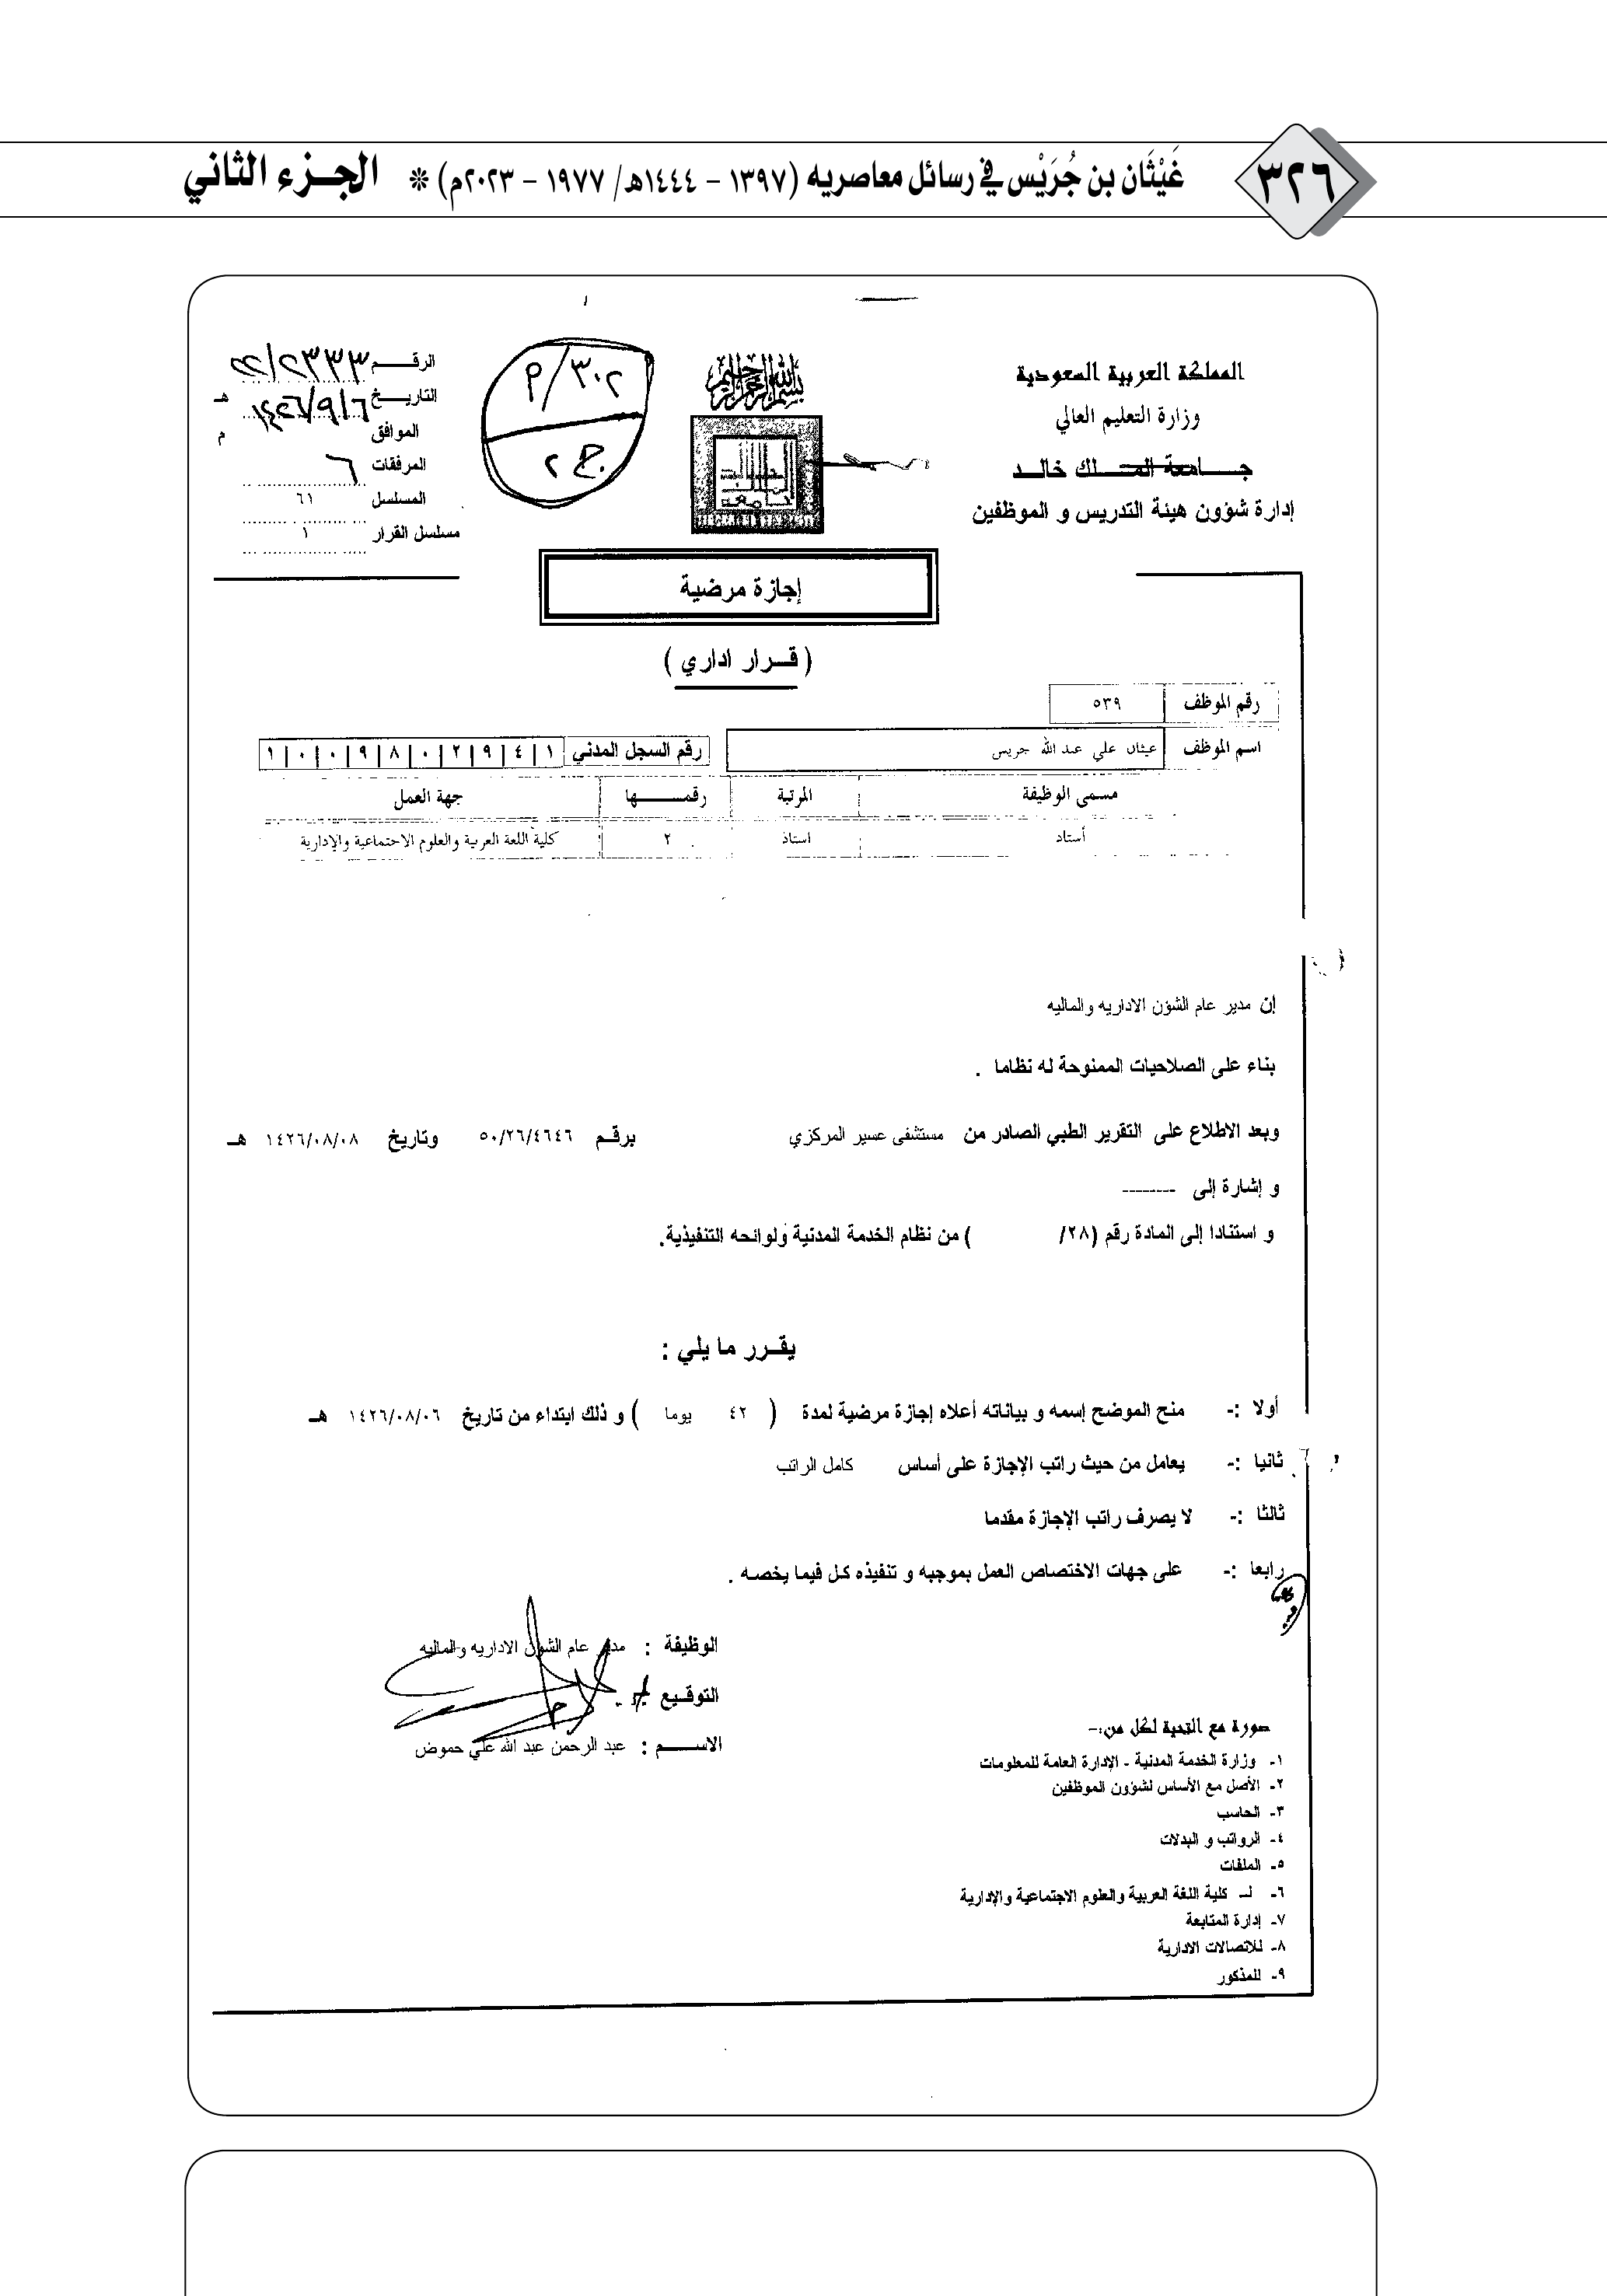 ٣٢٦
غَيْثَان بن جُرَيْس في رسائل معاصريه (١٣٩٧ - ١٤٤٤هـ/ ١٩٧٧ - ٢٠٢٣م) * الجزء الثاني
بسم الله الرحمن الرحيم
المملكة العربية السعودية
وزارة التعليم العالي
جامعة الملك خالد
إدارة شؤون هيئة التدريس و الموظفين
٣٠٢/م
ج ٢
الرقم
التاريخ ١٤٢٦/٩/٦ هـ
الموافق م
المرفقات ٦
المسلسل ٦١
مسلسل القرار ١
إجازة مرضية
( قرار اداري )
رقم الموظف ٥٣٩
اسم الموظف غيثان علي عبد الله جريس رقم السجل المدني ١|٠|٠|٩|٨|٠|٢|٩|٤|١
مسمى الوظيفة المرتبة رقمها جهة العمل
أستاذ استاذ ٢ كلية اللغة العربية والعلوم الاجتماعية والإدارية
إن مدير عام الشؤن الاداريه والماليه
بناء على الصلاحيات الممنوحة له نظاما .
وبعد الاطلاع على التقرير الطبي الصادر من مستشفى عسير المركزي برقم ٥٠/٢٦/٤٦٤٦ وتاريخ ١٤٢٦/٠٨/٠٨ هـ
و إشارة إلى --------
و استنادا إلى المادة رقم (٢٨/ ) من نظام الخدمة المدنية ولوائحه التنفيذية.
يقرر ما يلي :
أولا :- منح الموضح إسمه و بياناته أعلاه إجازة مرضية لمدة ( ٤٢ يوما ) و ذلك ابتداء من تاريخ ١٤٢٦/٠٨/٠٦ هـ
ثانيا :- يعامل من حيث راتب الإجازة على أساس كامل الراتب
ثالثا :- لا يصرف راتب الإجازة مقدما
رابعا :- على جهات الاختصاص العمل بموجبه و تنفيذه كل فيما يخصه .
الوظيفة : مدير عام الشؤن الاداريه والماليه
التوقيع :
الاسم : عبد الرحمن عبد الله علي حموض
صورة مع التحية لكل من:-
١- وزارة الخدمة المدنية - الإدارة العامة للمعلومات
٢- الأصل مع الأساس لشؤون الموظفين
٣- الحاسب
٤- الرواتب و البدلات
٥- الملفات
٦- لـ كلية اللغة العربية والعلوم الاجتماعية والإدارية
٧- إدارة المتابعة
٨- للاتصالات الادارية
٩- للمذكور